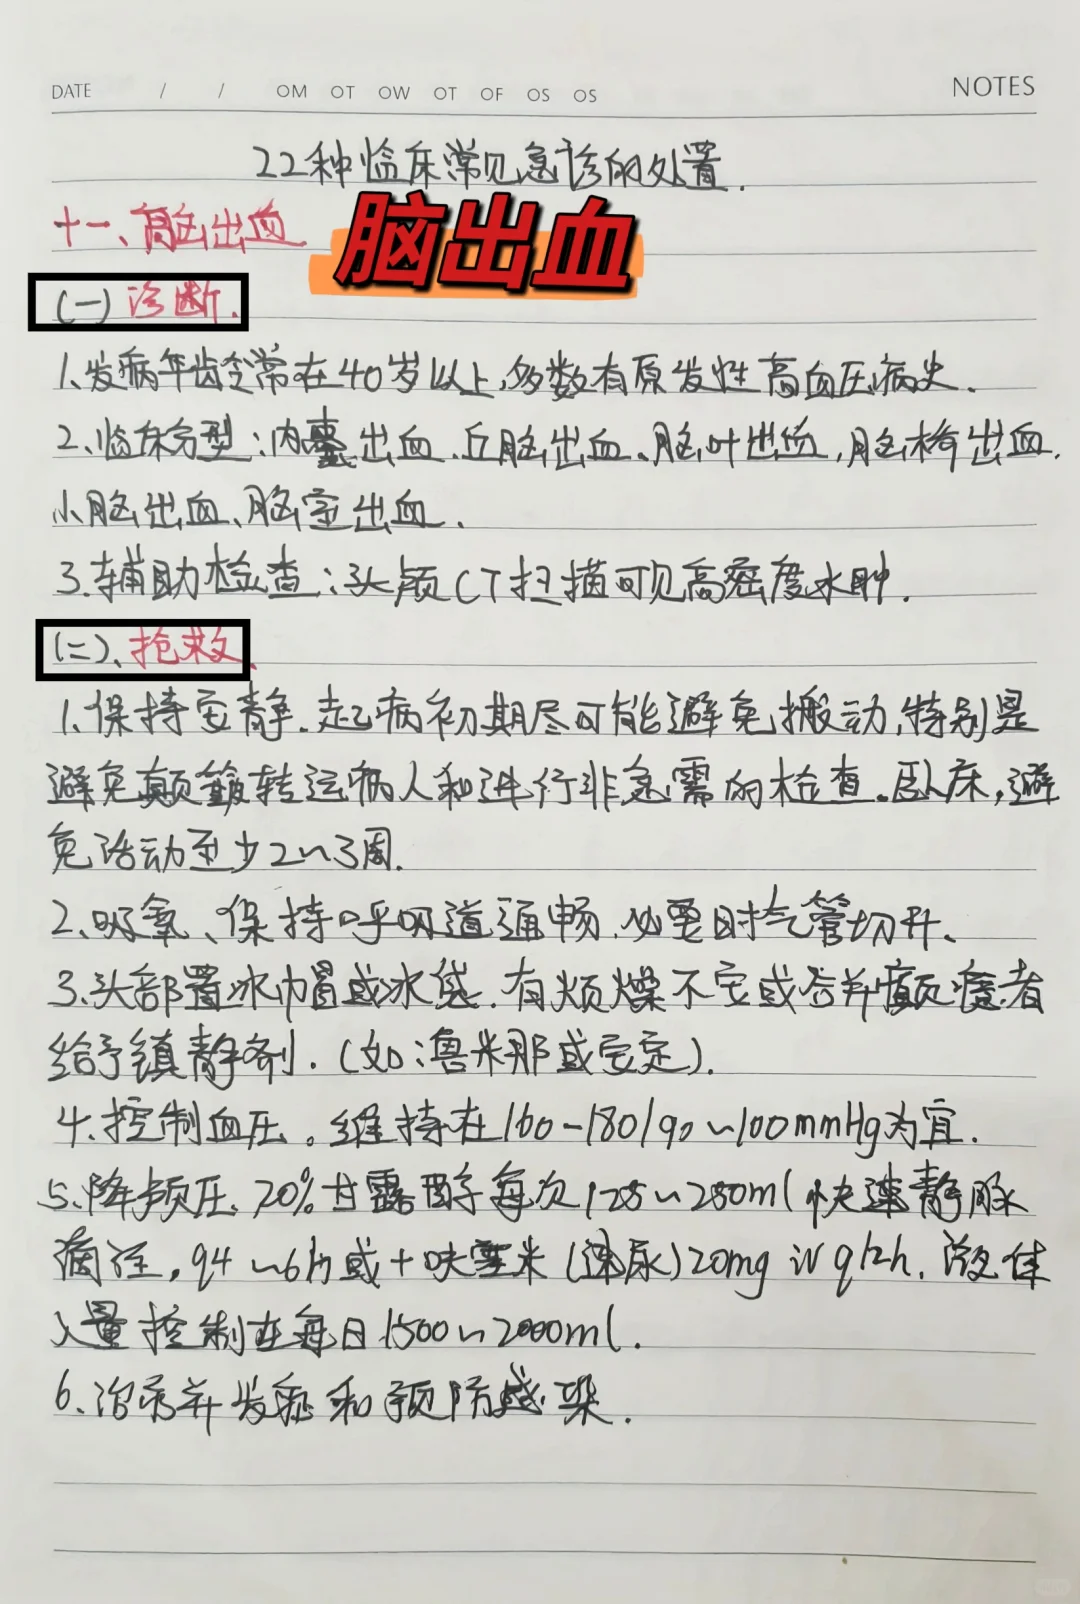 DATE / / OM OT OW OT OF OS OS NOTES
22种临床常见急诊的处置.
十一、脑出血
脑出血
(一)诊断.
1.发病年龄常在40岁以上,多数有原发性高血压病史.
2.临床分型:内囊出血.丘脑出血、脑叶出血,脑桥出血.
小脑出血、脑室出血.
3.辅助检查:头颅CT扫描可见高密度水肿.
(二)、抢救.
1.保持安静.起病初期尽可能避免搬动,特别是
避免颠簸转运病人和进行非急需的检查.卧床,避
免活动至少2~3周.
2.吸氧、保持呼吸道通畅.必要时气管切开、
3.头部置冰帽或冰袋.有烦燥不安或合并癫痫者
给予镇静剂.(如:鲁米那或安定).
4.控制血压。维持在160-180/90~100mmHg为宜.
5.降颅压、20%甘露醇每次125~250ml快速静脉
滴注,q4~6h或+呋塞米(速尿)20mg iv q12h.液体
入量控制在每日1500~2000ml.
6.治疗并发症和预防感染.